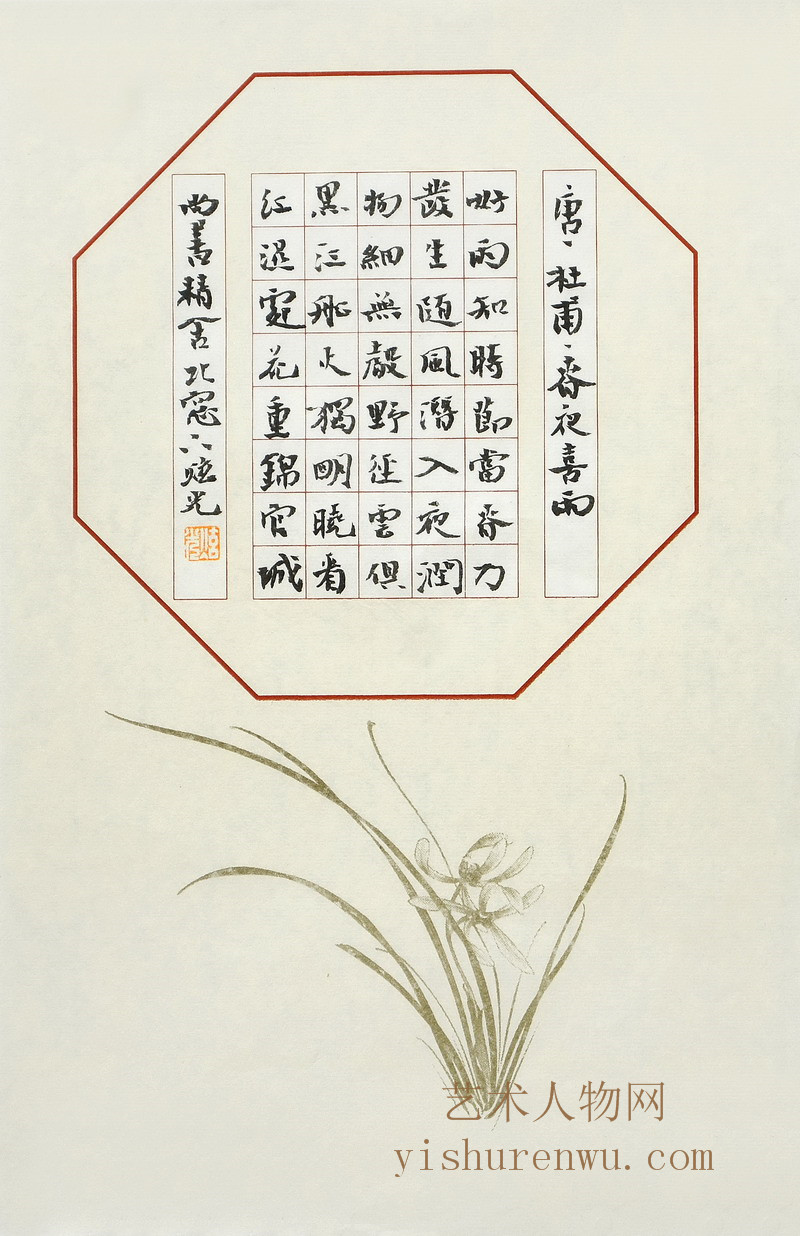 唐、杜甫、春夜喜雨
好雨知時節當春乃
發生随風潛入夜潤
物細無聲野徑雲俱
黑江船火獨明曉看
紅濕處花重錦官城
尚善精舍北窓下炫光
艺术人物网
yishurenwu.com